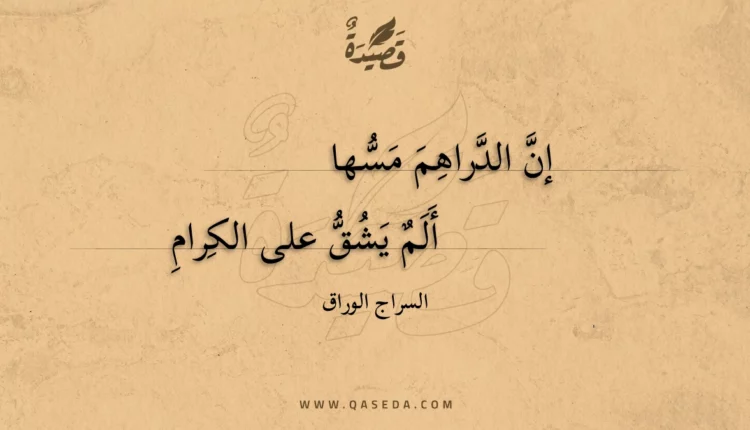 قَصِيدَةٌ
إنَّ الدَّراهِمَ مَسُّها
أَلَمٌ يَشُقُّ على الكِرامِ
السراج الوراق
WWW.QASEDA.COM